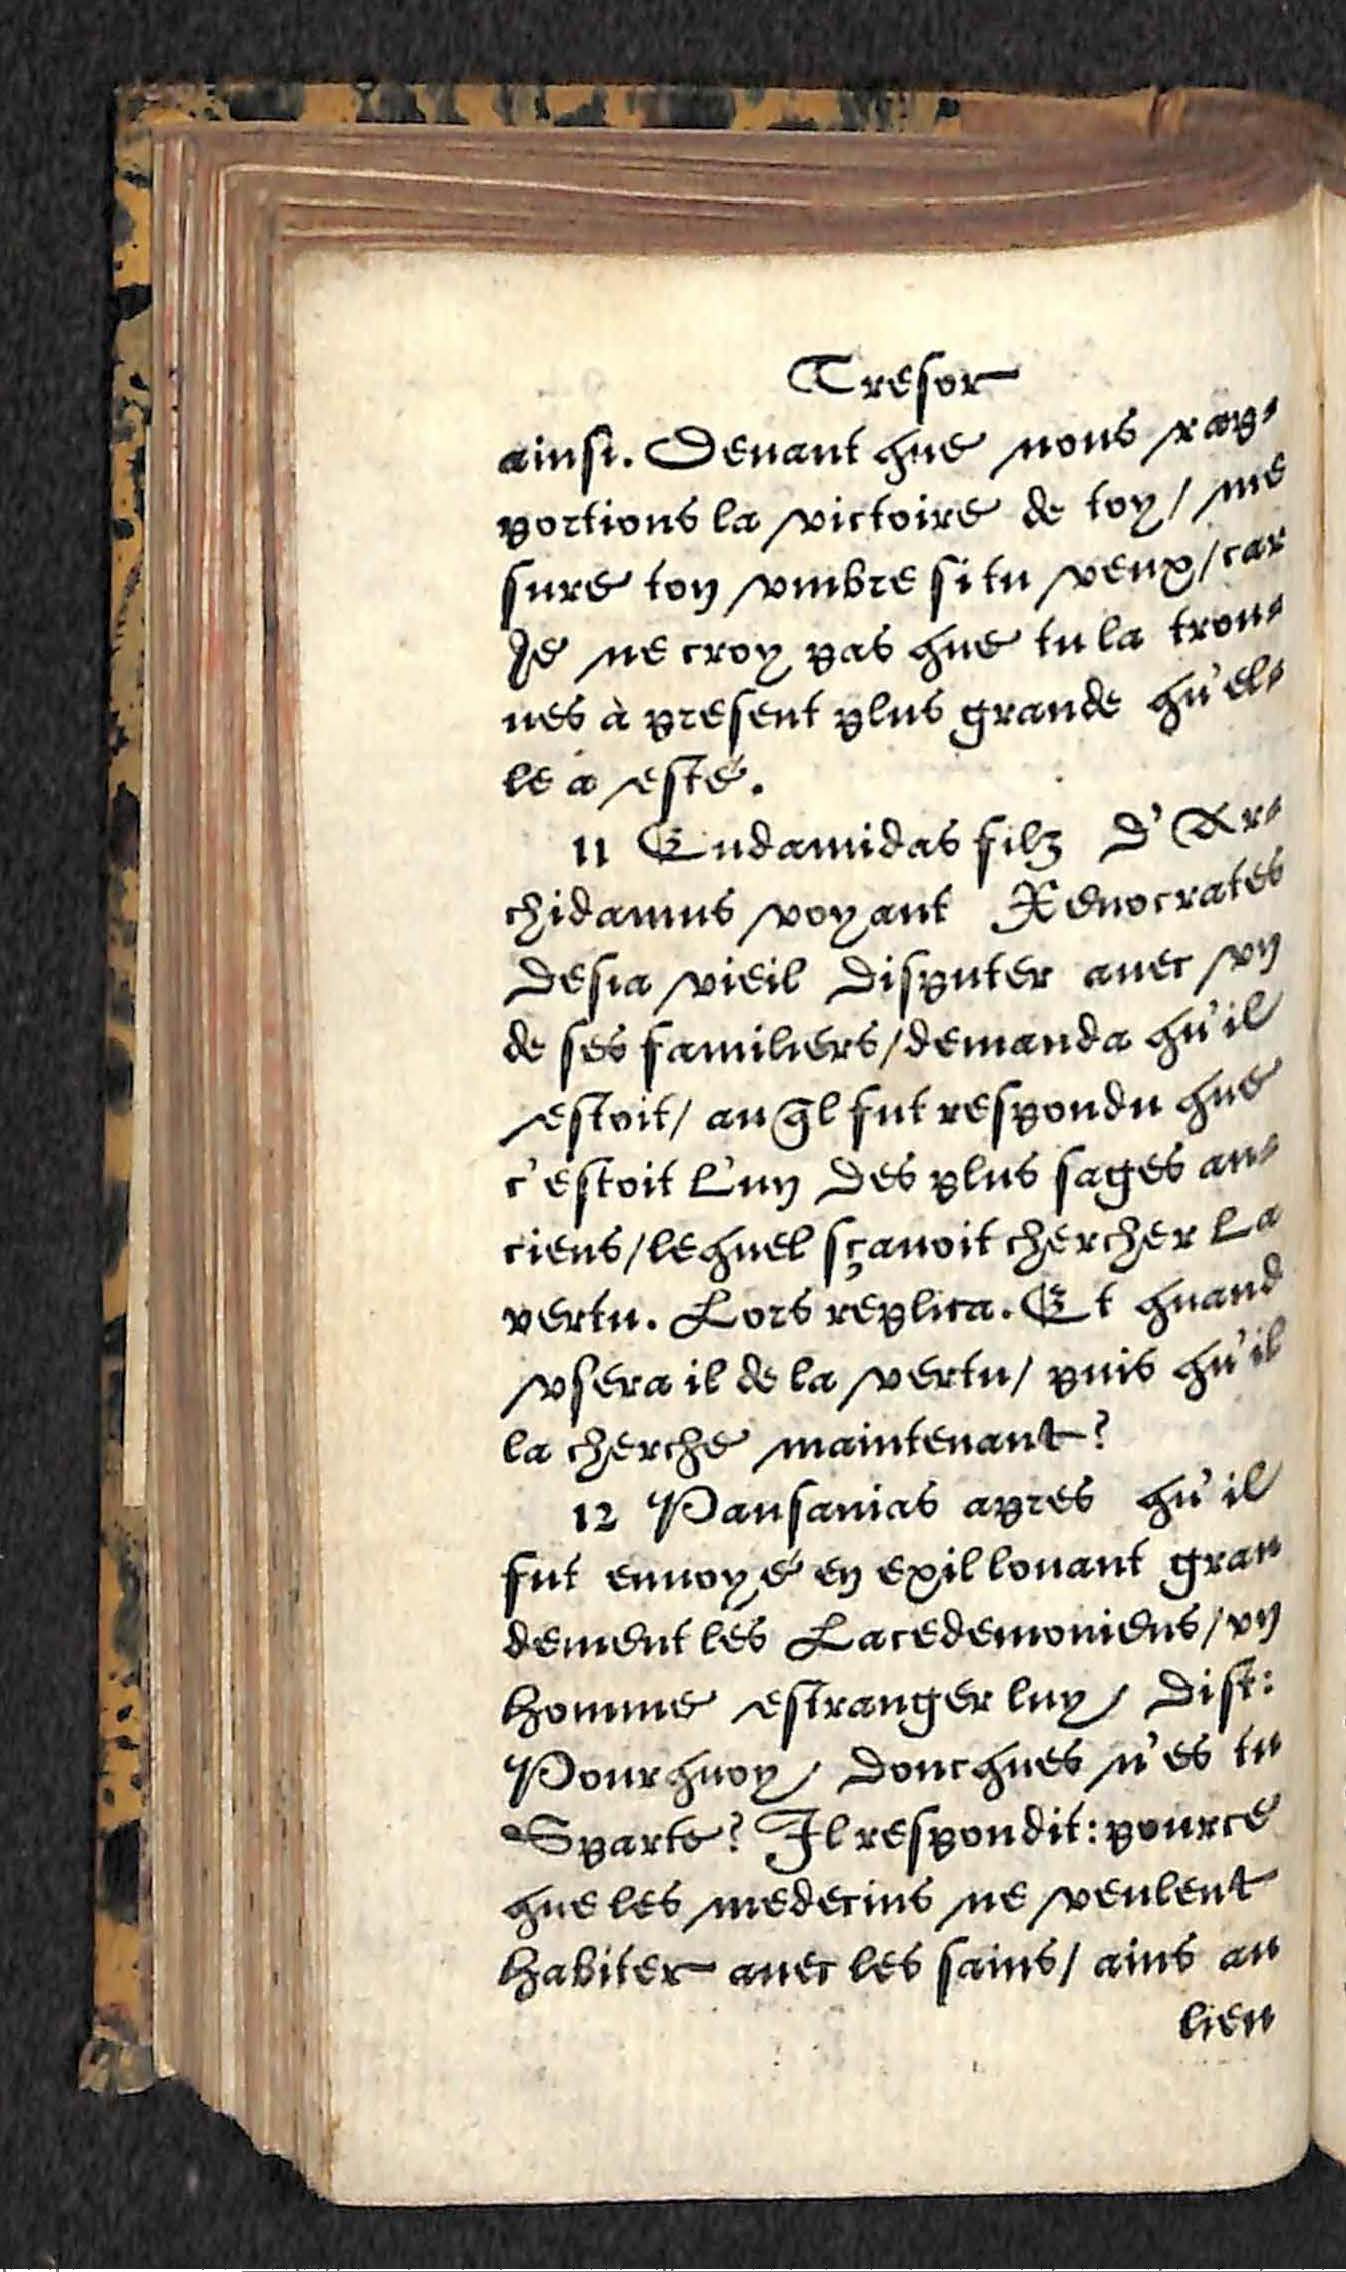 Tresor
ainsi. Deuant que nous rap-
portions la victoire de toy/ me
sure ton vmbre si tu veux/car
Je ne croy pas que tu la trou-
ues à present plus grande qu'el-
le a esté.
11 Eudamidas filz d'Ar-
chidamus voyant Xenocrates
desia vieil disputer auec vn
de ses familiers/demanda qu'il
estoit/ au q̃l fut respondu que
c'estoit l'un des plus sages an-
ciens/lequel sçauoit chercher la
vertu. Lors replica. Et quand
vsera il de la vertu/ puis qu'il
la cherche maintenant?
12 Pausanias apres qu'il
fut enuoyé en exil louant gran
dement les Lacedemoniens/vn
homme estranger luy dist:
Pourquoy doncques n'es tu
Sparte? Il respondit: pource
que les medecins ne veulent
habiter auec les sains/ ains au
lieu